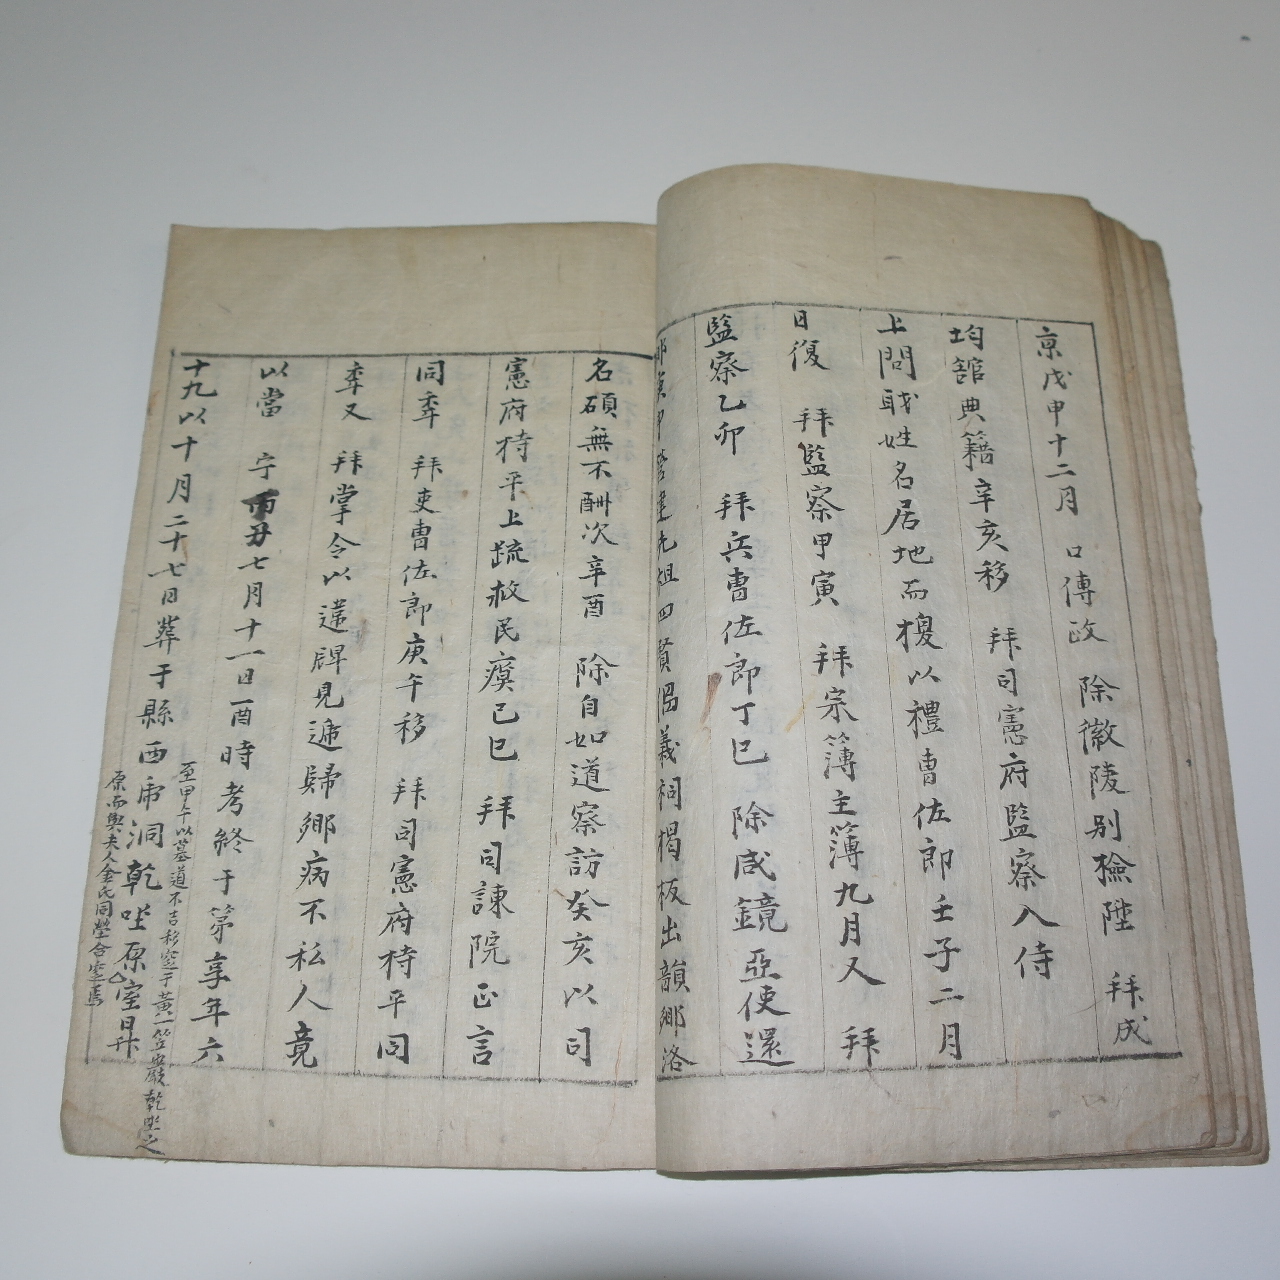 京戊申十二月 口傳政 除徽陵別檢陞 拜成
均館典籍辛亥移 拜司憲府監察入侍
上問職姓名居地而復以禮曹佐郎壬子二月
日復 拜監察甲寅 拜宗簿主簿九月又 拜
監察乙卯 拜兵曹佐郎丁巳 除咸鏡亞使還
營建先祖四賢 義祠揭板出韻鄉洛
名碩無不酬次辛酉 除自如道察訪癸亥以司
憲府持平上疏救民瘼己巳 拜司諫院正言
同季 拜吏曹佐郎庚午移 拜司憲府持平同
季又 拜掌令以違牌見遞歸鄉病不私人竟
以當 宁丁丑七月十一日酉時考終于第享年六
十九以十月二十七日葬于縣西 洞乾坐原室昇
至甲午以墓道不吉移窆于黃 笠巖乾坐之
原而與夫人金氏同塋合窆焉